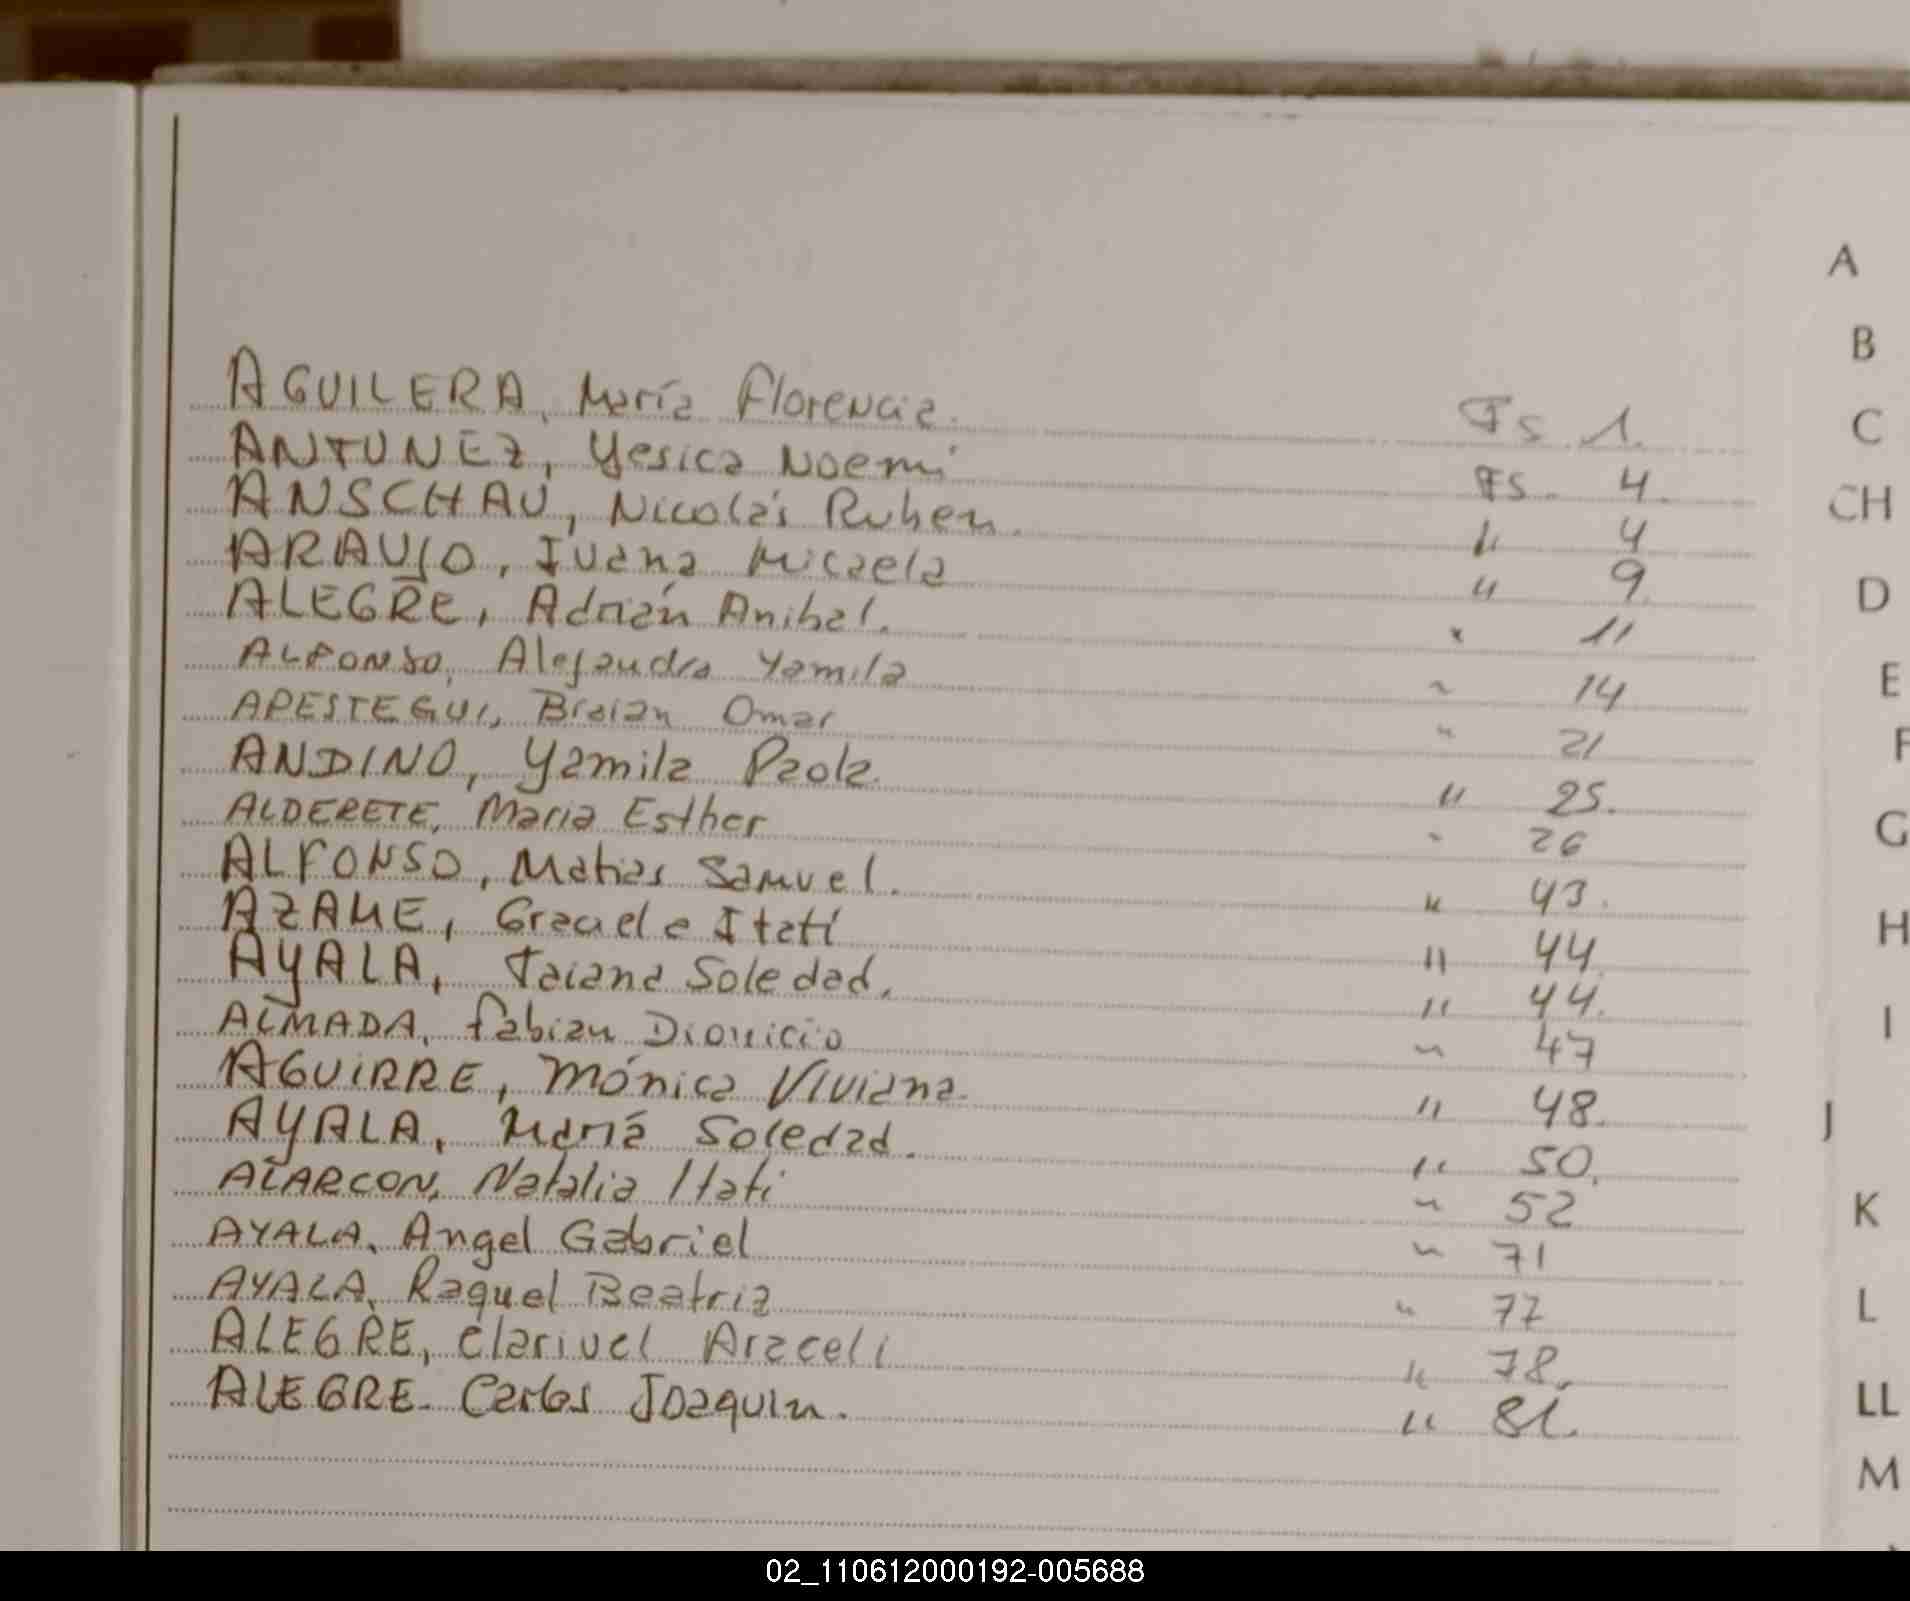 A
B
C
CH
D
E
F
G
H
I
J
K
L
LL
M
AGUILERA, María Florencia. Fs 1.
ANTUNEZ, Yesica Noemi Fs. 4.
ANSCHAU, Nicolás Ruben. " 4
ARAUJO, Ivana Micaela " 9.
ALEGRE, Adrián Anibal. " 11
ALFONSO, Alejandra Yamila " 14
APESTEGUI, Braian Omar " 21
ANDINO, Yamila Paola. " 25.
ALDERETE, Maria Esther " 26
ALFONSO, Matias Samuel. " 43.
AZAME, Graciela Itatí " 44.
AYALA, Taiana Soledad. " 44.
ALMADA, Fabian Dionicio " 47
AGUIRRE, Mónica Viviana. " 48.
AYALA, María Soledad. " 50.
ALARCON, Natalia Itati " 52
AYALA, Angel Gabriel " 71
AYALA, Raquel Beatriz " 77
ALEGRE, Clarivel Araceli " 78.
ALEGRE. Carlos Joaquin. " 81.
02_110612000192-005688